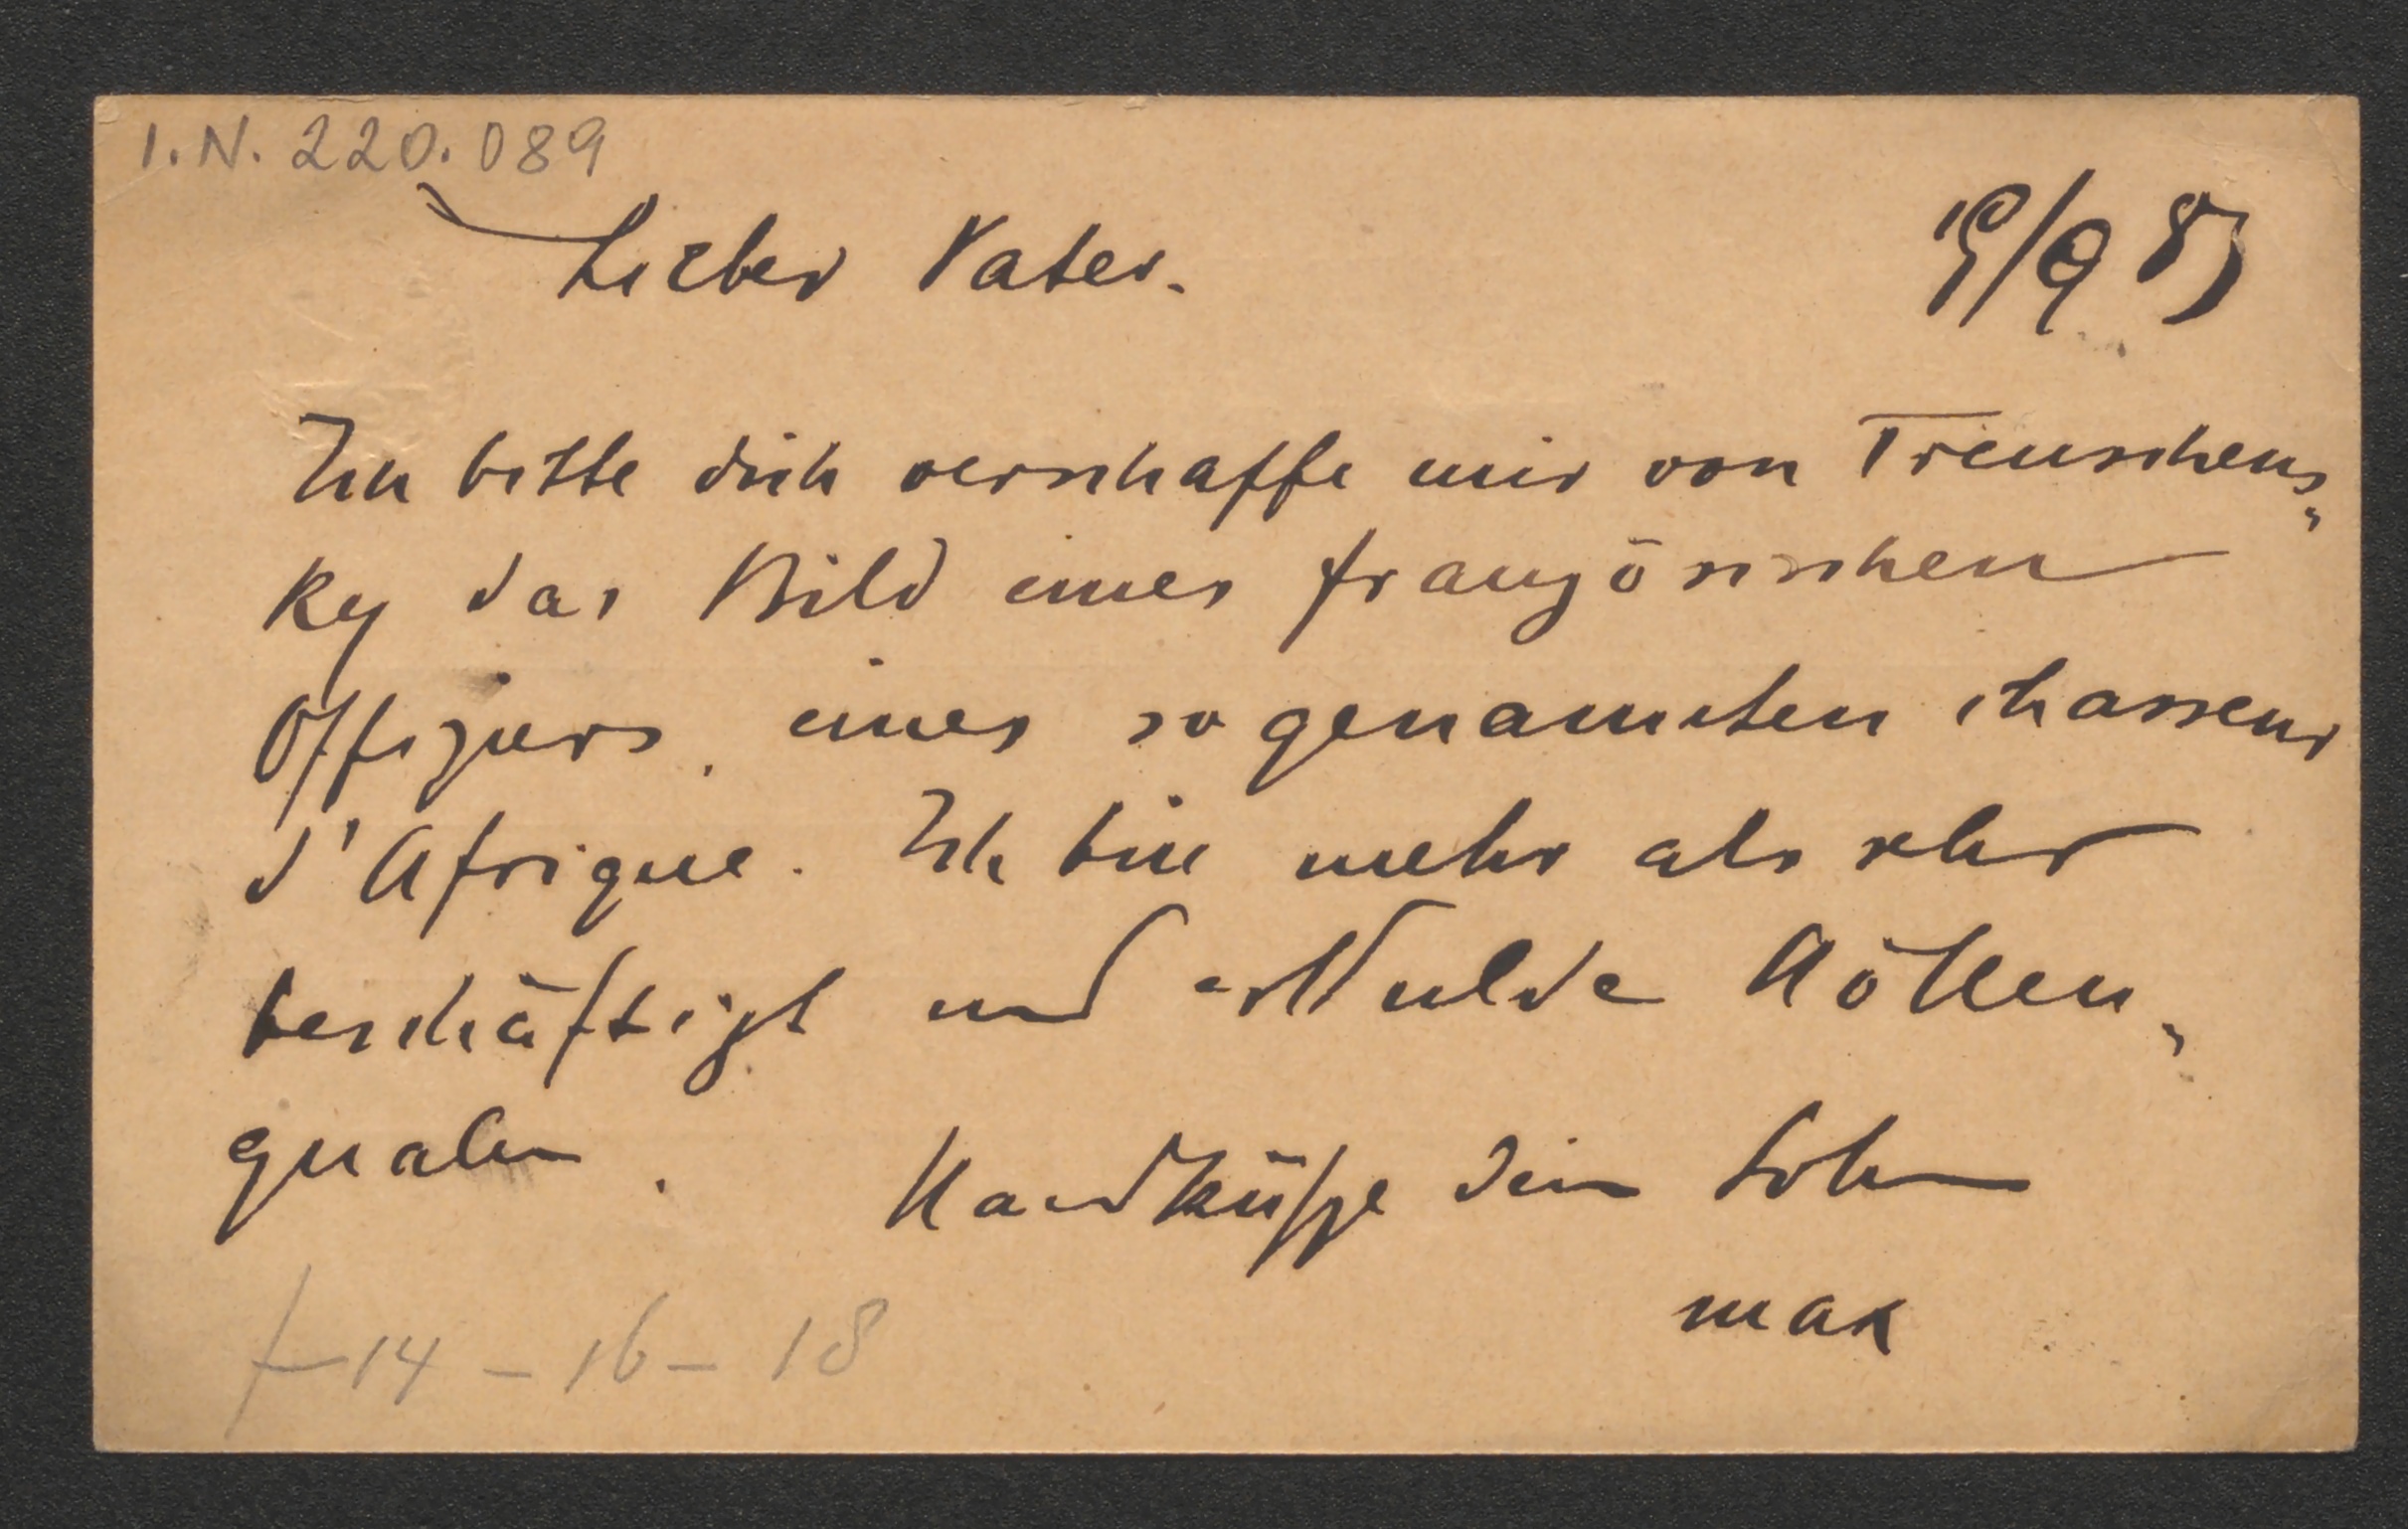 I.N. 220.089
Lieber Vater.
19/9 85
Ich bitte dich verschaffe mir von Treuschens„
ky das Bild eines französischen
Offiziers, eines sogenannten chasseur
d'Afrique. Ich bin mehr als sehr
beschäftigt und erdulde Höllen„
qualen. Handküsse dein Sohn
max
f 14 – 16 – 18